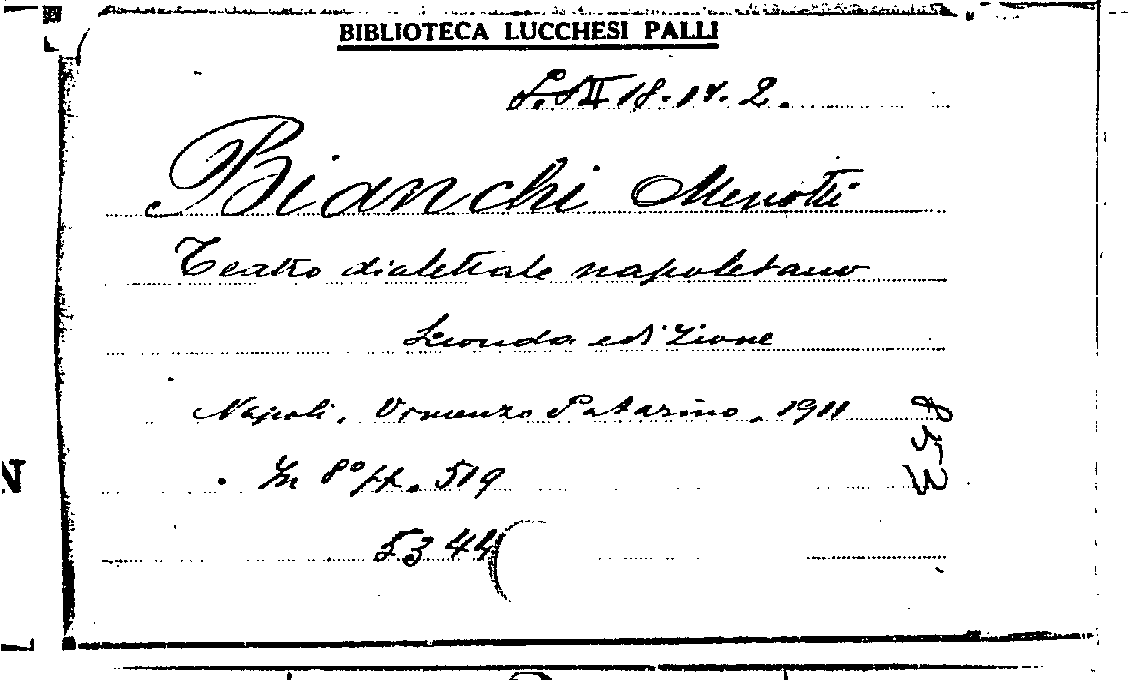 BIBLIOTECA LUCCHESI PALLI
Bianchi Menotti
Teatro dialettale napoletano
Seconda edizione
Napoli, Vincenzo Patarino, 1911
In 8° pp. 519
5344
N